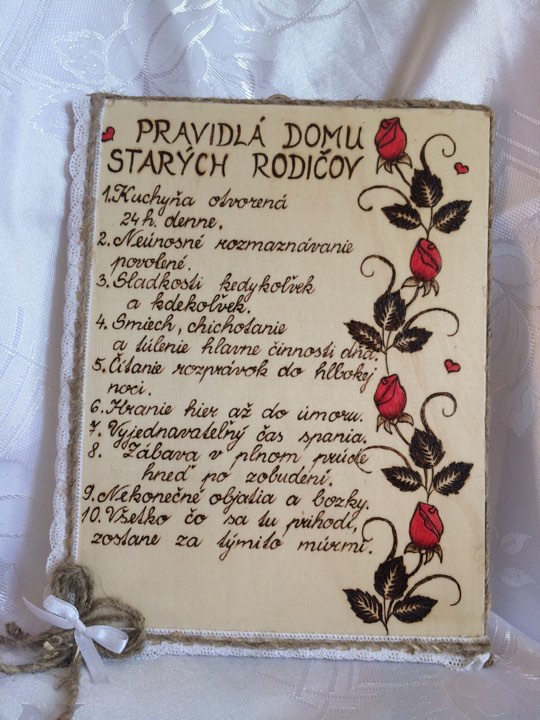 PRAVIDLÁ DOMU
STARÝCH RODIČOV
1. Kuchyňa otvorená
24 h. denne.
2. Neúnosné rozmaznávanie
povolené.
3. Sladkosti kedykoľvek
a kdekoľvek.
4. Smiech, chichotanie
a túlenie hlavne činnosti dňa.
5. Čítanie rozprávok do hlbokej
noci.
6. Hranie hier až do úmoru.
7. Vyjednavateľný čas spania.
8. Zábava v plnom prúde
hneď po zobudení.
9. Nekonečné objatia a bozky.
10. Všetko čo sa tu prihodí,
zostane za týmito múrmi.